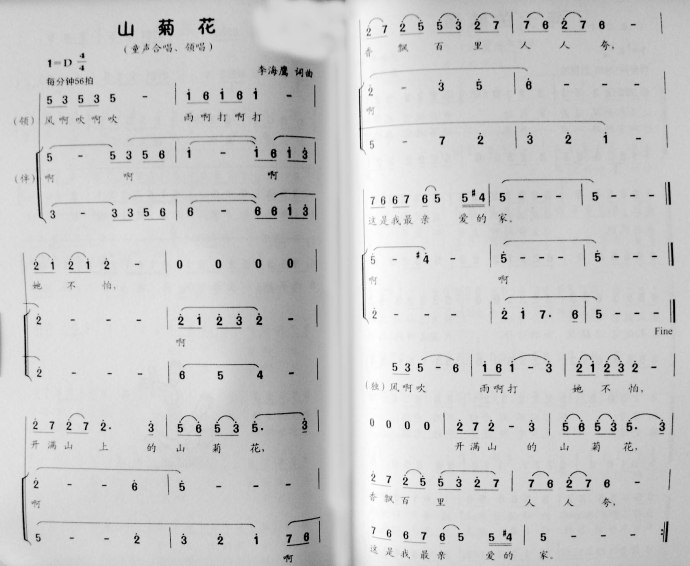 山菊花
(童声合唱、领唱)
1=D 4/4
每分钟56拍
李海鹰 词曲
5 3 5 3 5 - | i 6 i 6 i -
(领) 风啊吹啊吹 雨啊打啊打
5 - 5 3 5 6 | i - i 6 i 3
(伴) 啊 啊 啊
3 - 3 3 5 6 | 6 - 6 6 i 3
2 i 2 i 2 - | 0 0 0 0
她不怕,
2 - - | 2 i 2 3 2 -
啊
2 - - | 6 5 4 -
2 7 2 7 2. 3 | 5 6 5 3 5. 3
开满山上的山菊花,
2 - - 6 | 5 - - -
啊
5 - - 2 | 3 2 i 7 6
啊
2 7 2 5 5 3 2 7 | 7 6 2 7 6 -
香飘百里人人夸,
2 - 3 5 | 6 - - -
啊
5 - 7 2 | 3 2 i -
7 6 6 7 6 5 5 #4 | 5 - - - | 5 - - -
这是我最亲爱的家。
5 - #4 - | 5 - - - | 5 - - -
啊 啊
2 - - - | 2 i 7. 6 | 5 - - -
Fine
5 3 5 - 6 | i 6 i - 3 | 2 i 2 3 2 -
(独) 风啊吹 雨啊打 她不怕,
0 0 0 0 | 2 7 2 - 3 | 5 6 5 3 5. 3
开满山的山菊花,
2 7 2 5 5 3 2 7 | 7 6 2 7 6 -
香飘百里人人夸,
7 6 6 7 6 5 5 #4 | 5 - - -
这是我最亲爱的家。